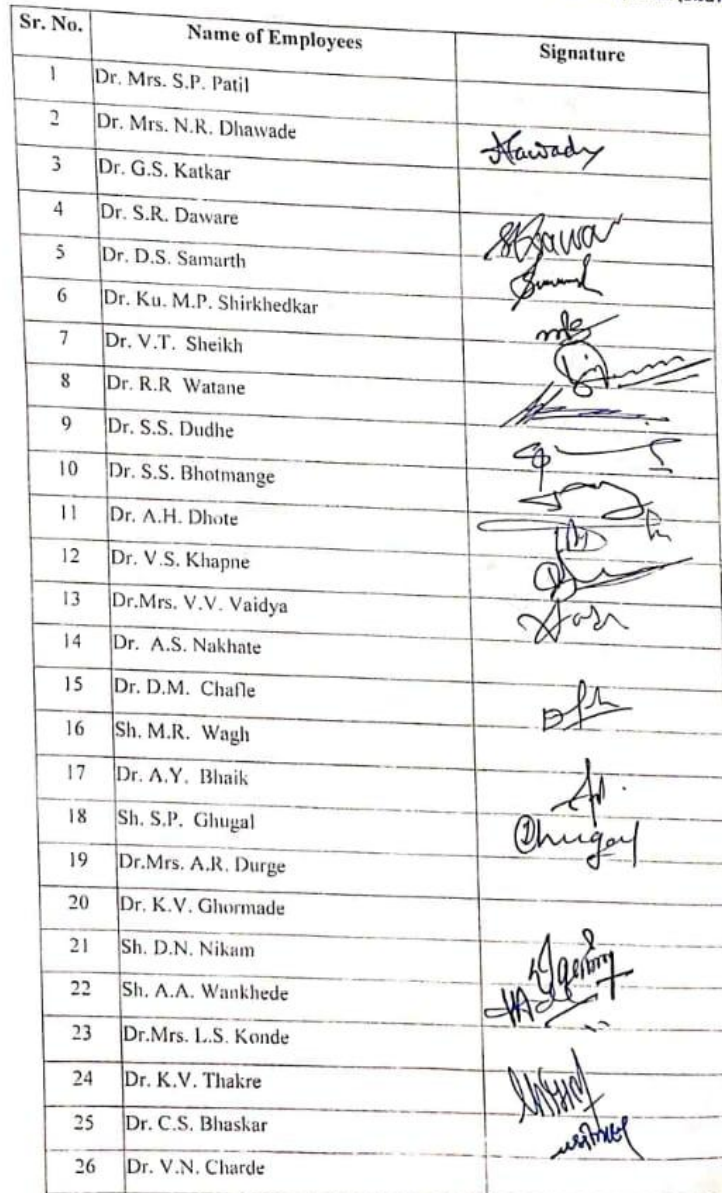 Sr. No. Name of Employees Signature
1 Dr. Mrs. S.P. Patil
2 Dr. Mrs. N.R. Dhawade
3 Dr. G.S. Katkar
4 Dr. S.R. Daware
5 Dr. D.S. Samarth
6 Dr. Ku. M.P. Shirkhedkar
7 Dr. V.T. Sheikh
8 Dr. R.R Watane
9 Dr. S.S. Dudhe
10 Dr. S.S. Bhotmange
11 Dr. A.H. Dhote
12 Dr. V.S. Khapne
13 Dr.Mrs. V.V. Vaidya
14 Dr. A.S. Nakhate
15 Dr. D.M. Chafle
16 Sh. M.R. Wagh
17 Dr. A.Y. Bhaik
18 Sh. S.P. Ghugal
19 Dr.Mrs. A.R. Durge
20 Dr. K.V. Ghormade
21 Sh. D.N. Nikam
22 Sh. A.A. Wankhede
23 Dr.Mrs. L.S. Konde
24 Dr. K.V. Thakre
25 Dr. C.S. Bhaskar
26 Dr. V.N. Charde